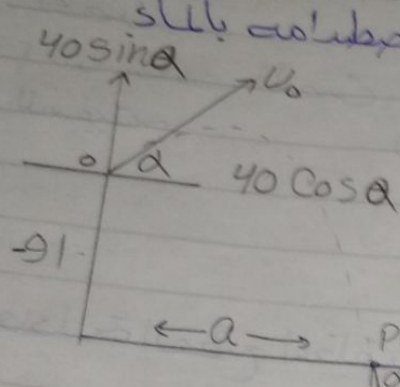 40 sin α
U₀
0 α 40 Cos α
-16
← a →
P